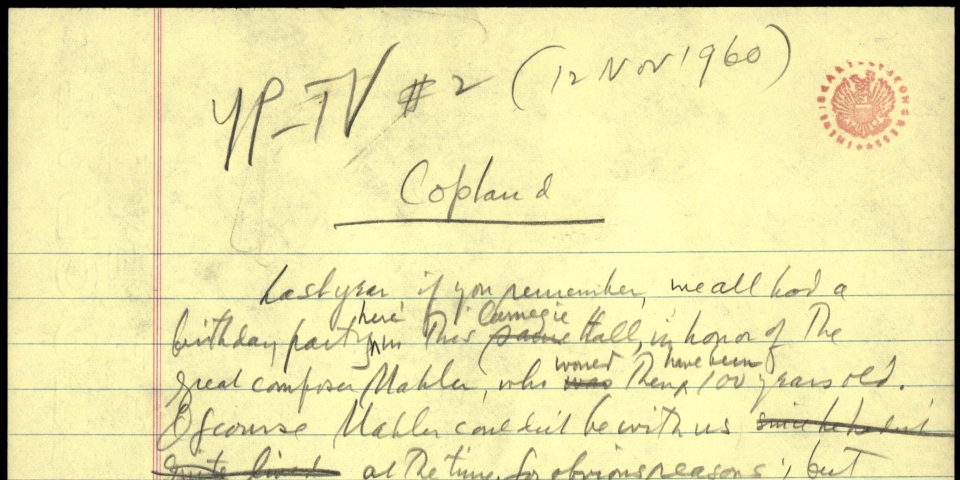 YP-TV #2 (12 Nov 1960)
Copland
Last year if you remember, we all had a
here Carnegie
birthday party in this same Hall, in honor of the
would have been
great composer Mahler, who was then 100 years old.
Of course Mahler couldn't be with us since he hadn't
quite lived at the time, for obvious reasons; but